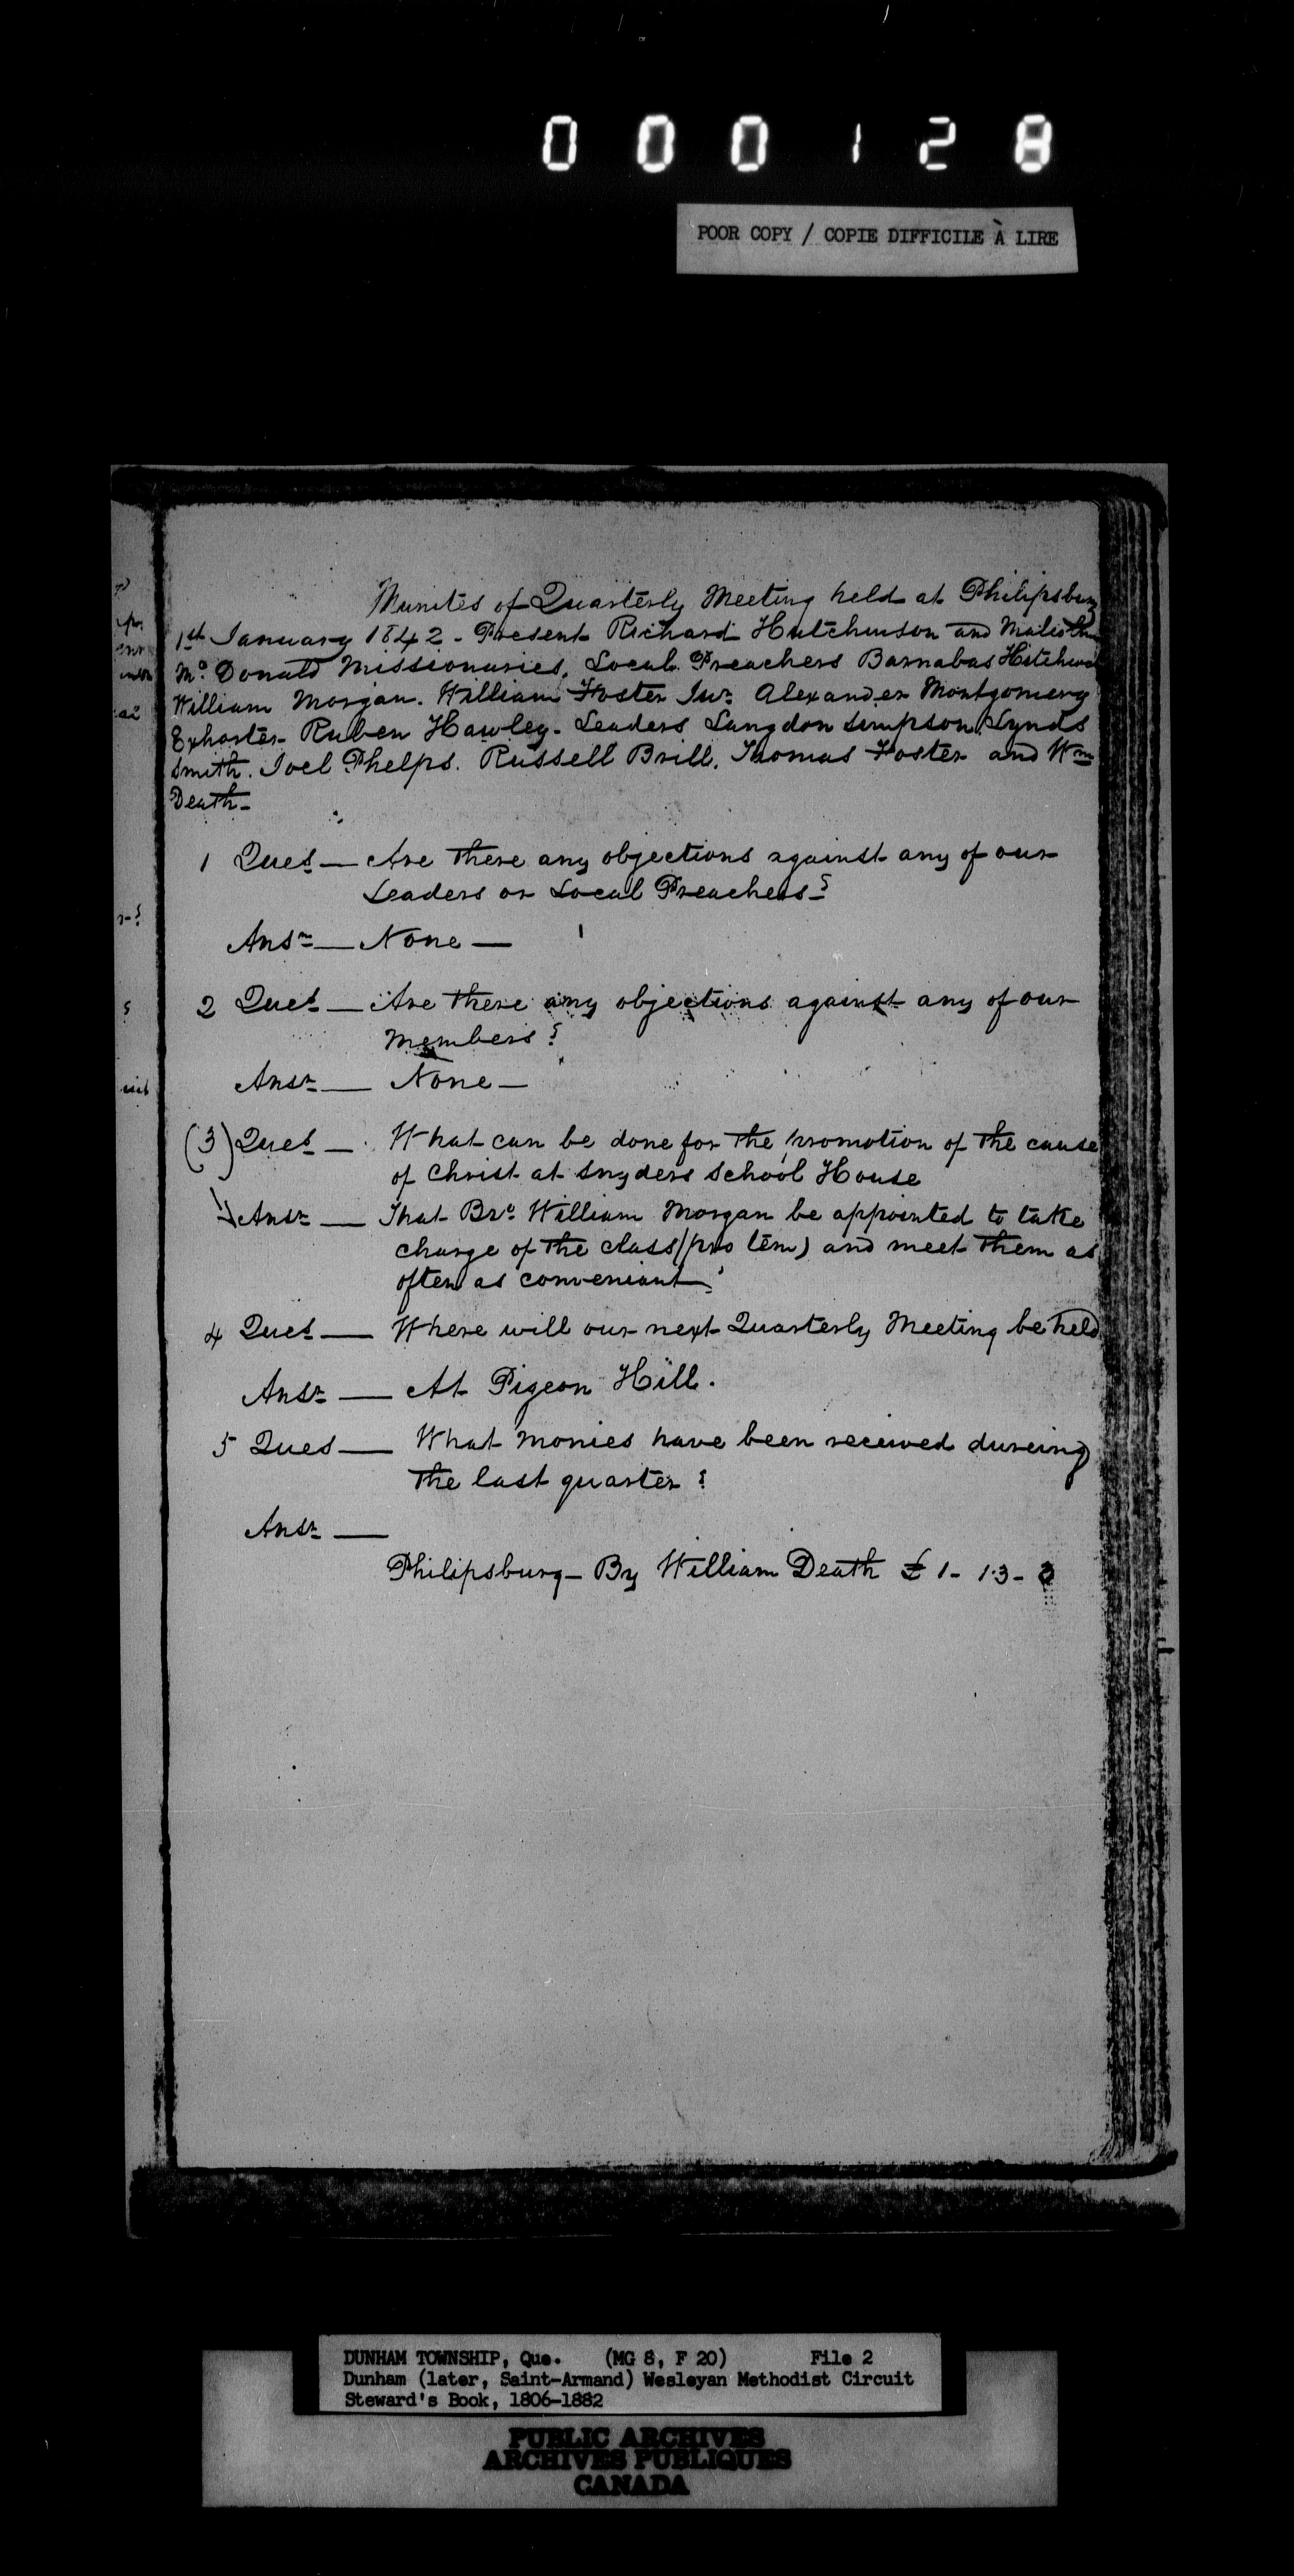 000128
POOR COPY / COPIE DIFFICILE À LIRE
Munites of Quarterly Meeting held at Philipsburg
1st January 1842 - Present Richard Hutchinson and
Mc Donald Missionaries, Local Preachers Barnabas Hitchcock
William Morgan. William Foster Junr Alexander Montgomery
Exhorter Ruben Hawley - Leaders Langdon Simpson, Lynds
Smith. Joel Phelps. Russell Brill. Thomas Foster and Wm
Death -
1 Ques — Are there any objections against any of our
Leaders or Local Preachers?
Ansr — None —
2 Ques — Are there any objections against any of our
Members?
Ansr — None —
(3) Ques — What can be done for the promotion of the cause
of Christ at Snyders School House
Ansr — That Bro William Morgan be appointed to take
charge of the class (pro tem) and meet them as
often as conveniant
4 Ques — Where will our next Quarterly Meeting be held
Ansr — At Pigeon Hill.
5 Ques — What monies have been received dureing
the last quarter?
Ansr —
Philipsburg - By William Death £ 1 - 13 -
DUNHAM TOWNSHIP, Que. (MG 8, F 20) File 2
Dunham (later, Saint-Armand) Wesleyan Methodist Circuit
Steward's Book, 1806-1882
PUBLIC ARCHIVES
ARCHIVES PUBLIQUES
CANADA